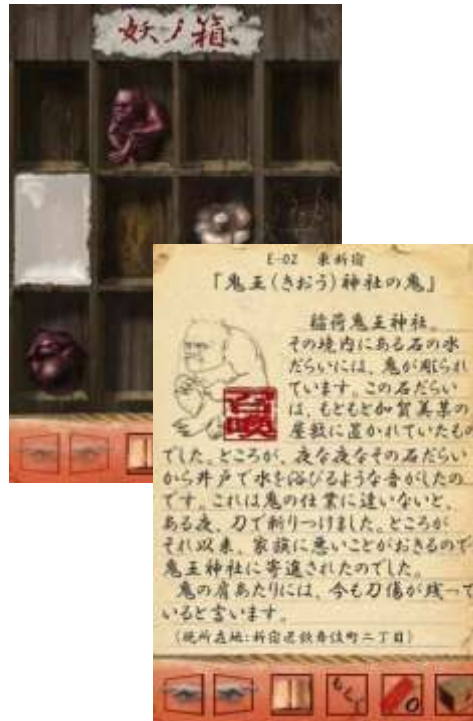 妖ノ箱
E-02 東新宿
「鬼王(きおう)神社の鬼」
稲荷鬼王神社。
その境内にある石の水
だらいには、鬼が彫られ
ています。この石だらい
は、もともと加賀美某の
屋敷に置かれていたもの
でした。ところが、夜な夜なその石だらい
から井戸で水を浴びるような音がしたの
です。これは鬼の仕業に違いないと、
ある夜、刀で斬りつけました。ところが
それ以来、家族に悪いことがおきるので
鬼王神社に寄進されたのでした。
鬼の肩あたりには、今も刀傷が残って
いると言います。
(現所在地:新宿区歌舞伎町二丁目)
召喚
もくじ